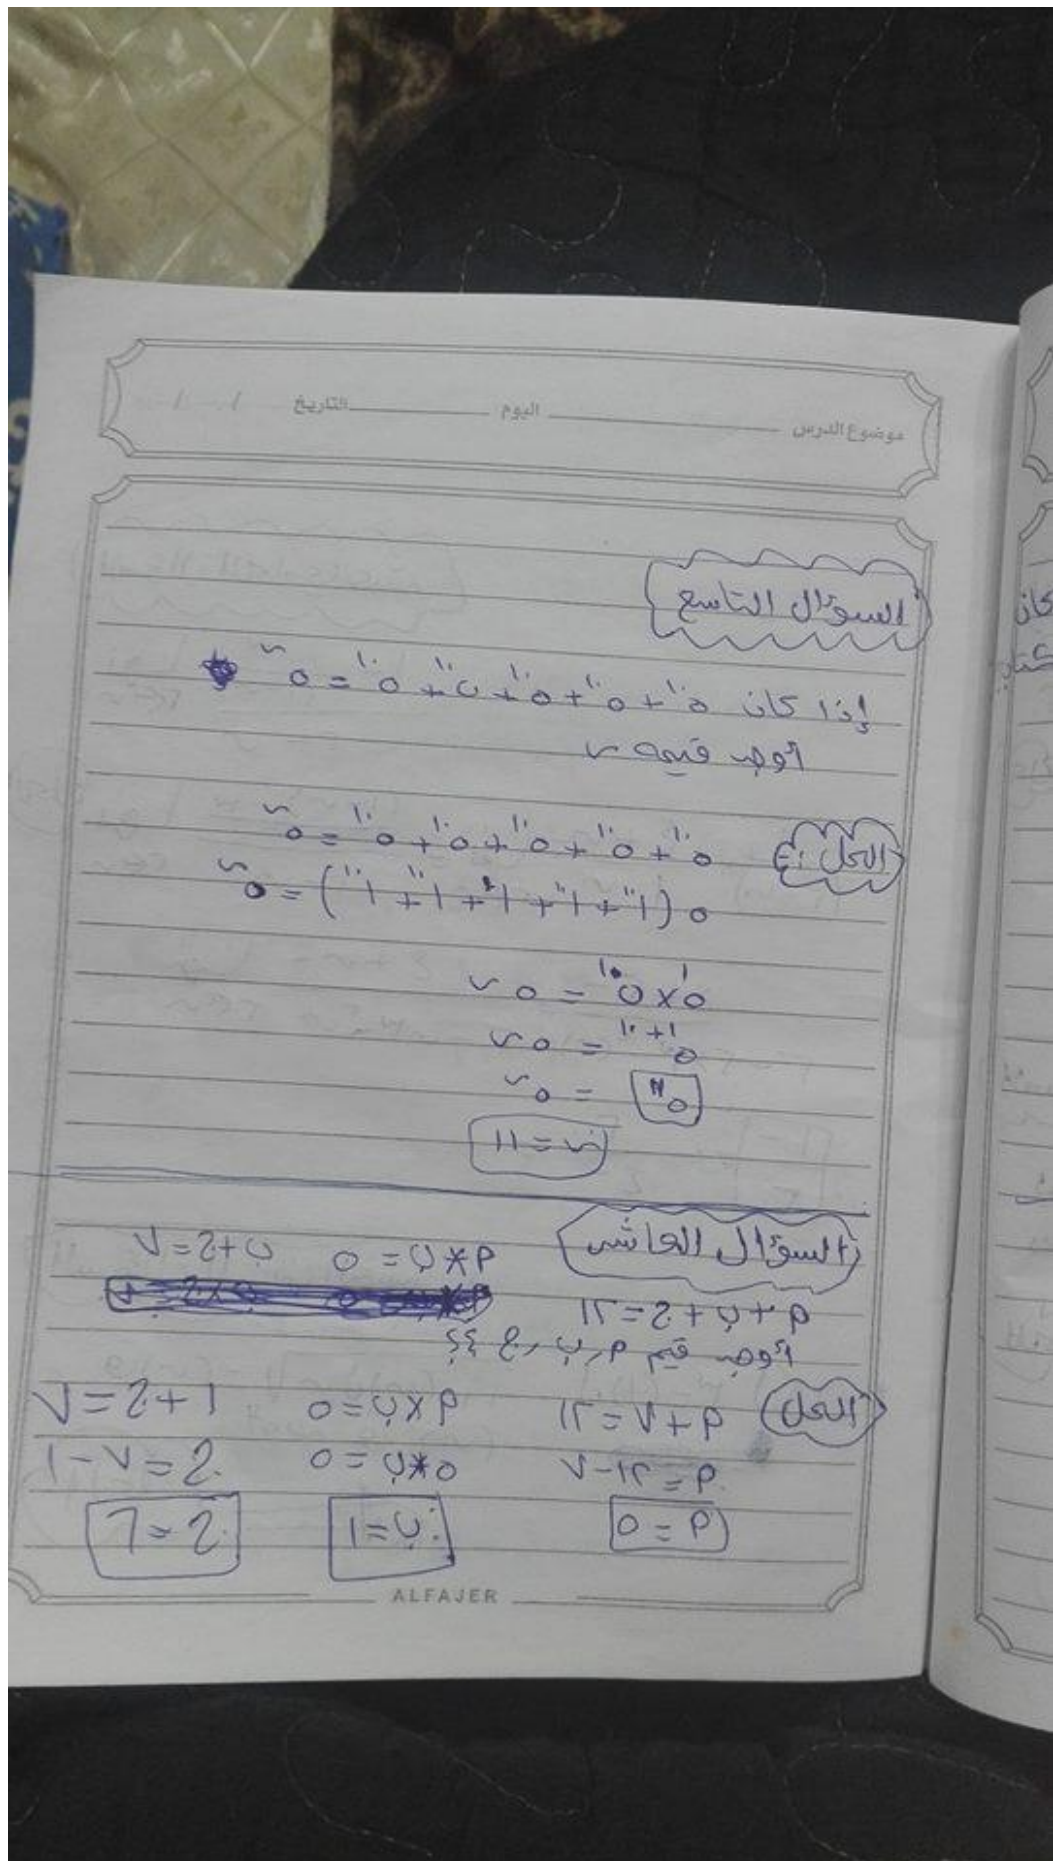 موضوع الدرس ________ اليوم ________ التاريخ
السؤال التاسع
إذا كان ٥^١٠ + ٥^١٠ + ٥^١٠ + ٥^١٠ + ٥^١٠ = ٥^س
أوجد قيمه س
الحل :-
٥^١٠ + ٥^١٠ + ٥^١٠ + ٥^١٠ + ٥^١٠ = ٥^س
٥ (١^١٠ + ١^١٠ + ١ + ١^١٠ + ١^١٠) = ٥^س
٥^١ × ٥^١٠ = ٥^س
٥^١+١٠ = ٥^س
٥^١١ = ٥^س
س = ١١
السؤال العاشر
٩ * ب = ٥ ب + ج = ٧
٩ + ب + ج = ١٢
أوجد قيم ٩ , ب , ج ؟؟
الحل
٩ + ٧ = ١٢ ٩ × ب = ٥ ١ + ج = ٧
٩ = ١٢ - ٧ ٥ * ب = ٥ ج = ٧ - ١
٩ = ٥ ب = ١ ج = ٦
ALFAJER